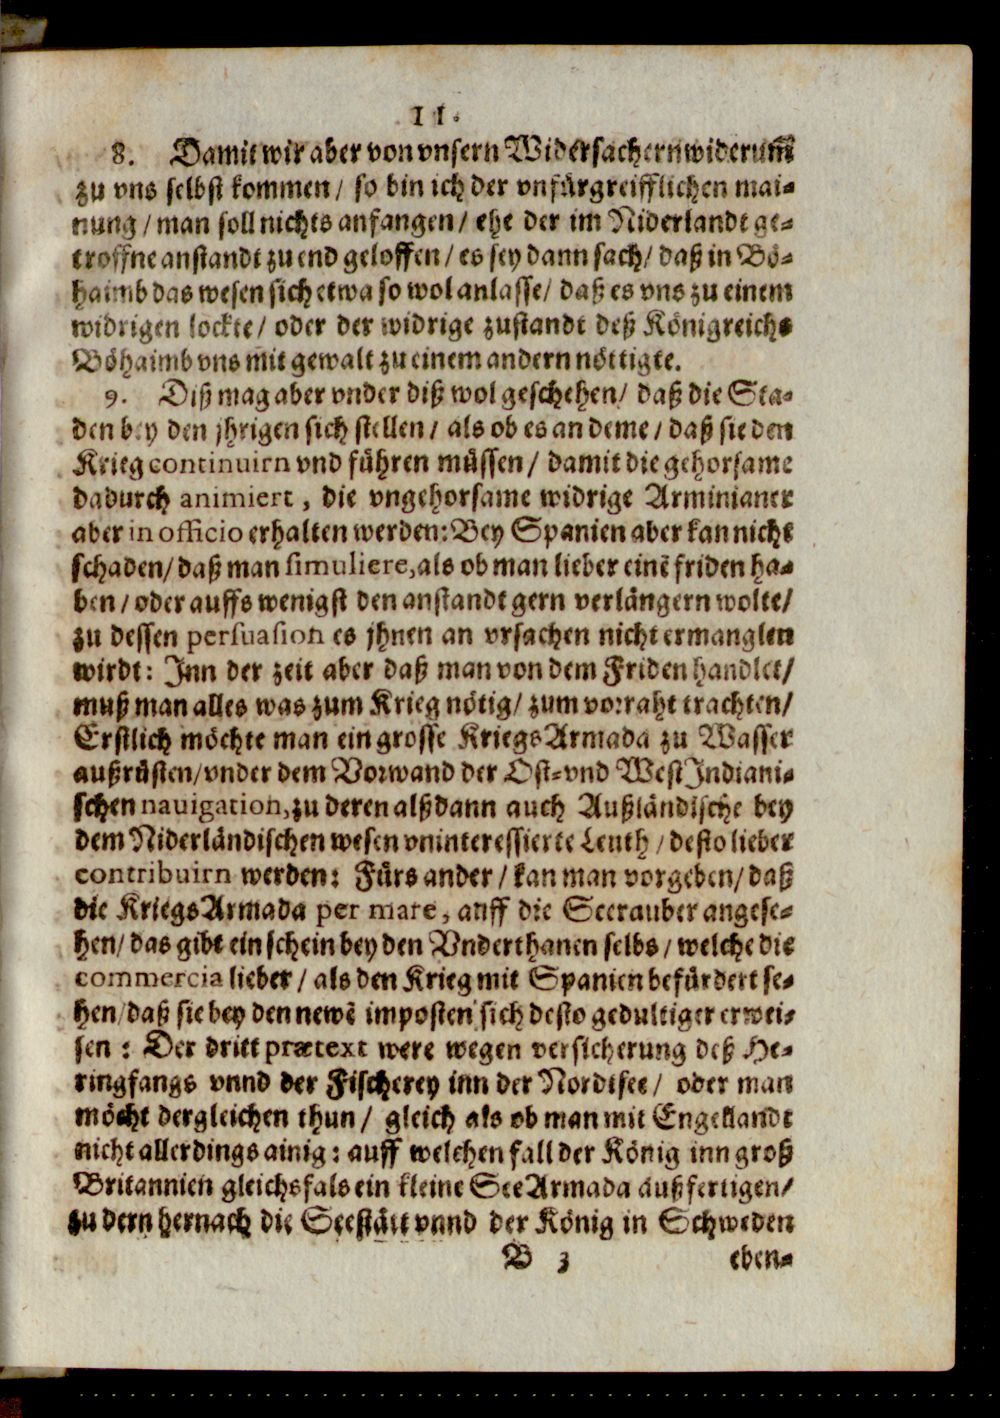 11.
8. Damit wir aber von vnsern Widersachern widerum̃
zu vns selbst kommen / so bin ich der vnfürgreifflichen mai-
nung / man soll nichts anfangen / ehe der im Niderlandt ge-
troffne anstandt zu end geloffen / es sey dann sach / daß in Bö-
haimb das wesen sich etwa so wol anlasse / daß es vns zu einem
widrigen lockte / oder der widrige zustandt deß Königreichs
Böhaimb vns mit gewalt zu einem andern nöttigte.
9. Diß mag aber vnder diß wol geschehen / daß die Sta-
den bey den jhrigen sich stellen / als ob es an deme / daß sie den
Krieg continuirn vnd führen müssen / damit die gehorsame
dadurch animiert, die vngehorsame widrige Arminianer
aber in officio erhalten werden: Bey Spanien aber kan nicht
schaden / daß man simuliere, als ob man lieber einẽ friden ha-
ben / oder auffs wenigst den anstandt gern verlängern wolte /
zu dessen persuasion es jhnen an vrsachen nicht ermanglen
wirdt: Inn der zeit aber daß man von dem Friden handlet /
muß man alles was zum Krieg nötig / zum vorraht trachten /
Erstlich möchte man ein grosse KriegsArmada zu Wasser
außrüsten / vnder dem Vorwand der Ost- vnd WestIndiani-
schen nauigation, zu deren alßdann auch Außländische bey
dem Niderländischen wesen vninteressierte Leuth / desto lieber
contribuirn werden: Fürs ander / kan man vorgeben / daß
die KriegsArmada per mare, auff die Seerauber angese-
hen / das gibt ein schein bey den Vnderthanen selbs / welche die
commercia lieber / als den Krieg mit Spanien befürdert se-
hen / daß sie bey den newẽ imposten sich desto gedultiger erwei-
sen: Der dritt prætext were wegen versicherung deß He-
ringfangs vnnd der Fischerey inn der Nordisee / oder man
möcht dergleichen thun / gleich als ob man mit Engellandt
nicht allerdings ainig: auff welchen fall der König inn groß
Britannien gleichsfals ein kleine SeeArmada außfertigen /
zu dern hernach die Seestätt vnnd der König in Schweden
B 3 eben-